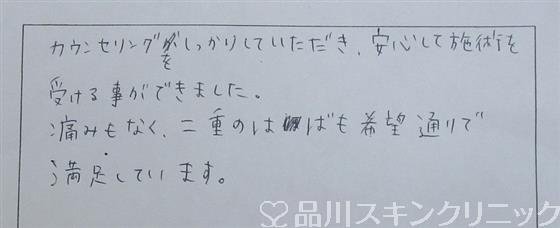 カウンセリングをしっかりしていただき、安心して施術を
受ける事ができました。
痛みもなく、二重のはばも希望通りで
満足しています。
品川スキンクリニック